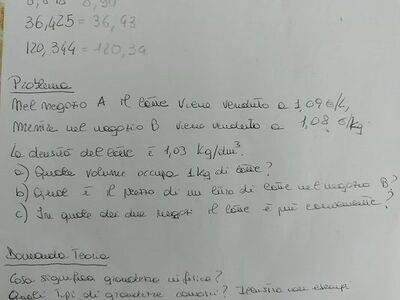 36,425 = 36,43
120,344 = 120,34
Problema
Nel negozio A il latte viene venduto a 1,09 €/L,
mentre nel negozio B viene venduto a 1,08 €/kg.
La densità del latte è 1,03 Kg/dm³.
a) Quale volume occupa 1 kg di latte?
b) Qual è il prezzo di un litro di latte nel negozio B?
c) In quale dei due negozi il latte è più conveniente?
Domanda Teoria
Cosa significa grandezza in fisica?
Quali tipi di grandezze conosci? con esempi